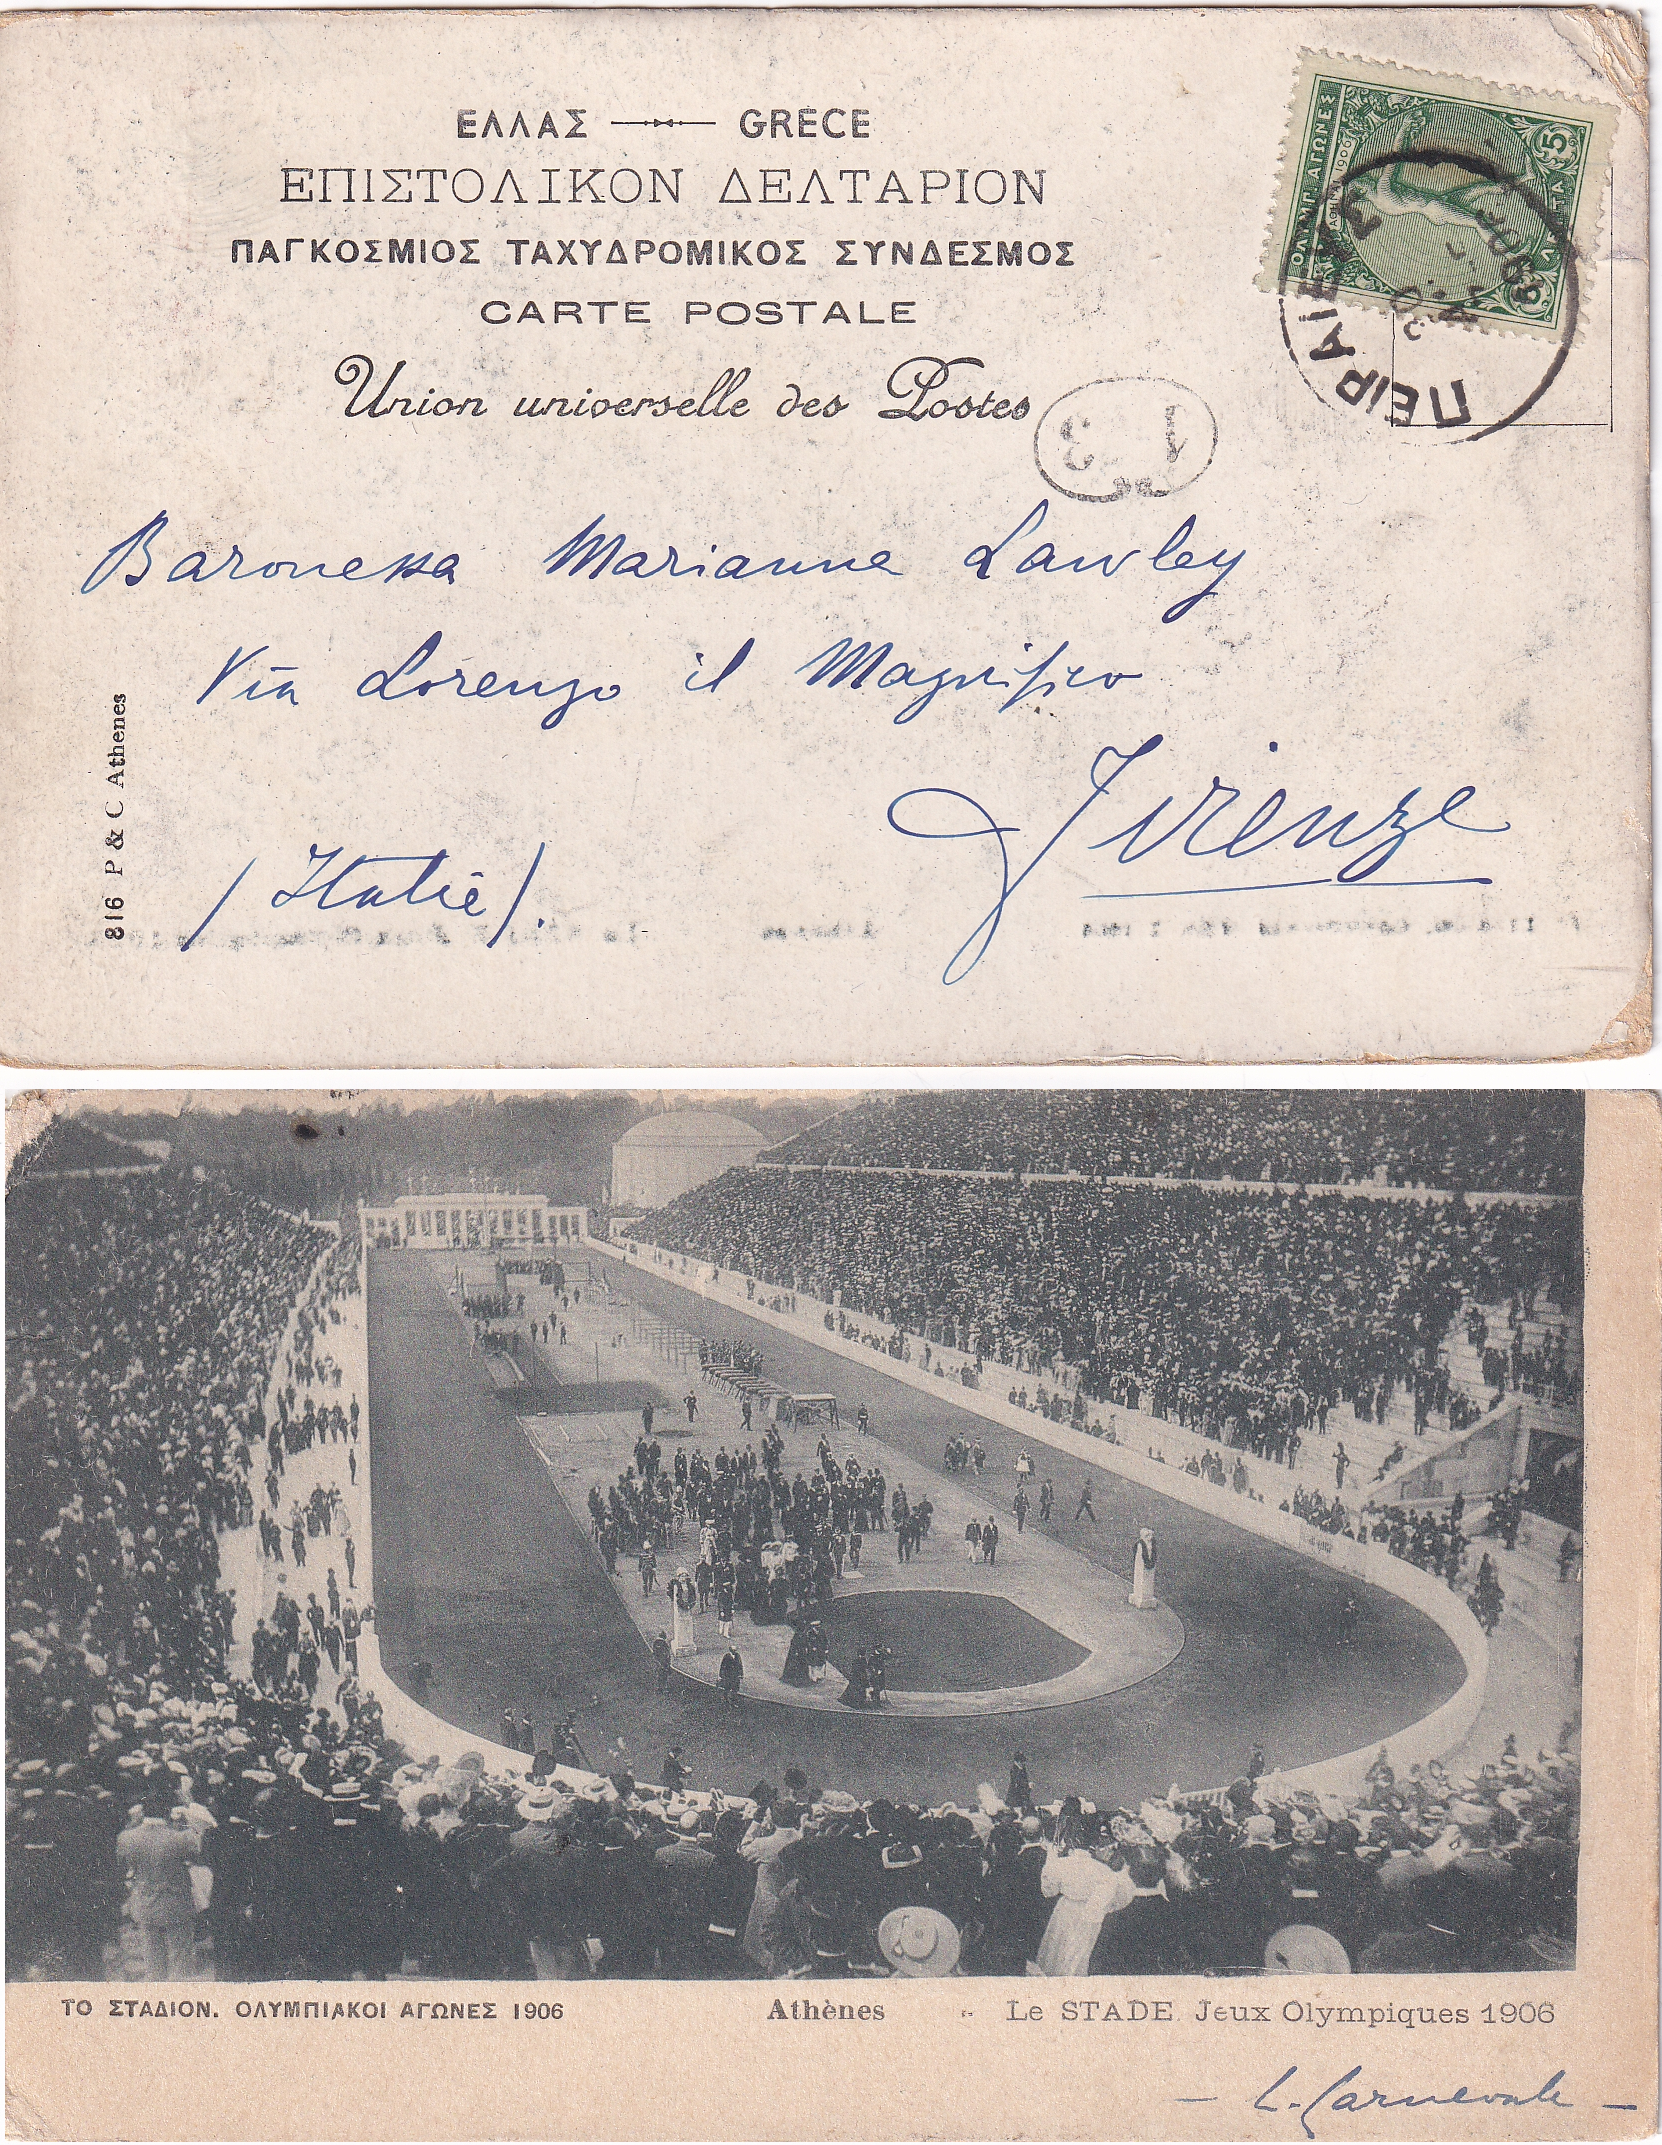 ΕΛΛΑΣ — GRÈCE
ΕΠΙΣΤΟΛΙΚΟΝ ΔΕΛΤΑΡΙΟΝ
ΠΑΓΚΟΣΜΙΟΣ ΤΑΧΥΔΡΟΜΙΚΟΣ ΣΥΝΔΕΣΜΟΣ
CARTE POSTALE
Union universelle des Postes
ΟΛΥΜΠ. ΑΓΩΝΕΣ
ΑΘΗΝΑΙ 1906
5 ΛΕΠΤΑ 5
ΠΕΙΡΑΙΕΥΣ
13
Baronessa Marianna Lawley
Via Lorenzo il Magnifico
Firenze
(Italie).
816 P & C Athenes
ΤΟ ΣΤΑΔΙΟΝ. ΟΛΥΜΠΙΑΚΟΙ ΑΓΩΝΕΣ 1906 Athènes - Le STADE Jeux Olympiques 1906
— L. Carnevale —